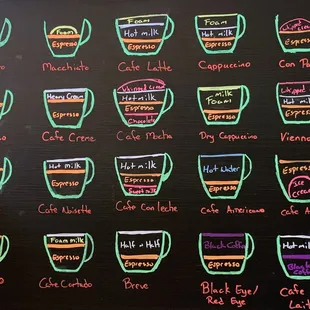 Foam
Espresso
Macchiato
Foam
Hot milk
Espresso
Cafe Latte
Foam
Hot milk
Espresso
Cappuccino
Whipped
Espresso
Con Pa
Heavy Cream
Espresso
Cafe Creme
Whipped Cream
Hot milk
Espresso
Chocolate
Cafe Mocha
milk
Foam
Espresso
Dry Cappuccino
Whipped
Hot milk
Espresso
Vienno
Hot milk
Espresso
Cafe Noisette
Hot milk
Espresso
Sweet milk
Cafe Con leche
Hot Water
Espresso
Cafe Americano
Espresso
Ice
Cream
Cafe A
Foam milk
Espresso
Cafe Cortado
Half n Half
Espresso
Breve
Black Coffee
Espresso
Black Eye/
Red Eye
Hot milk
Cafe
Lait